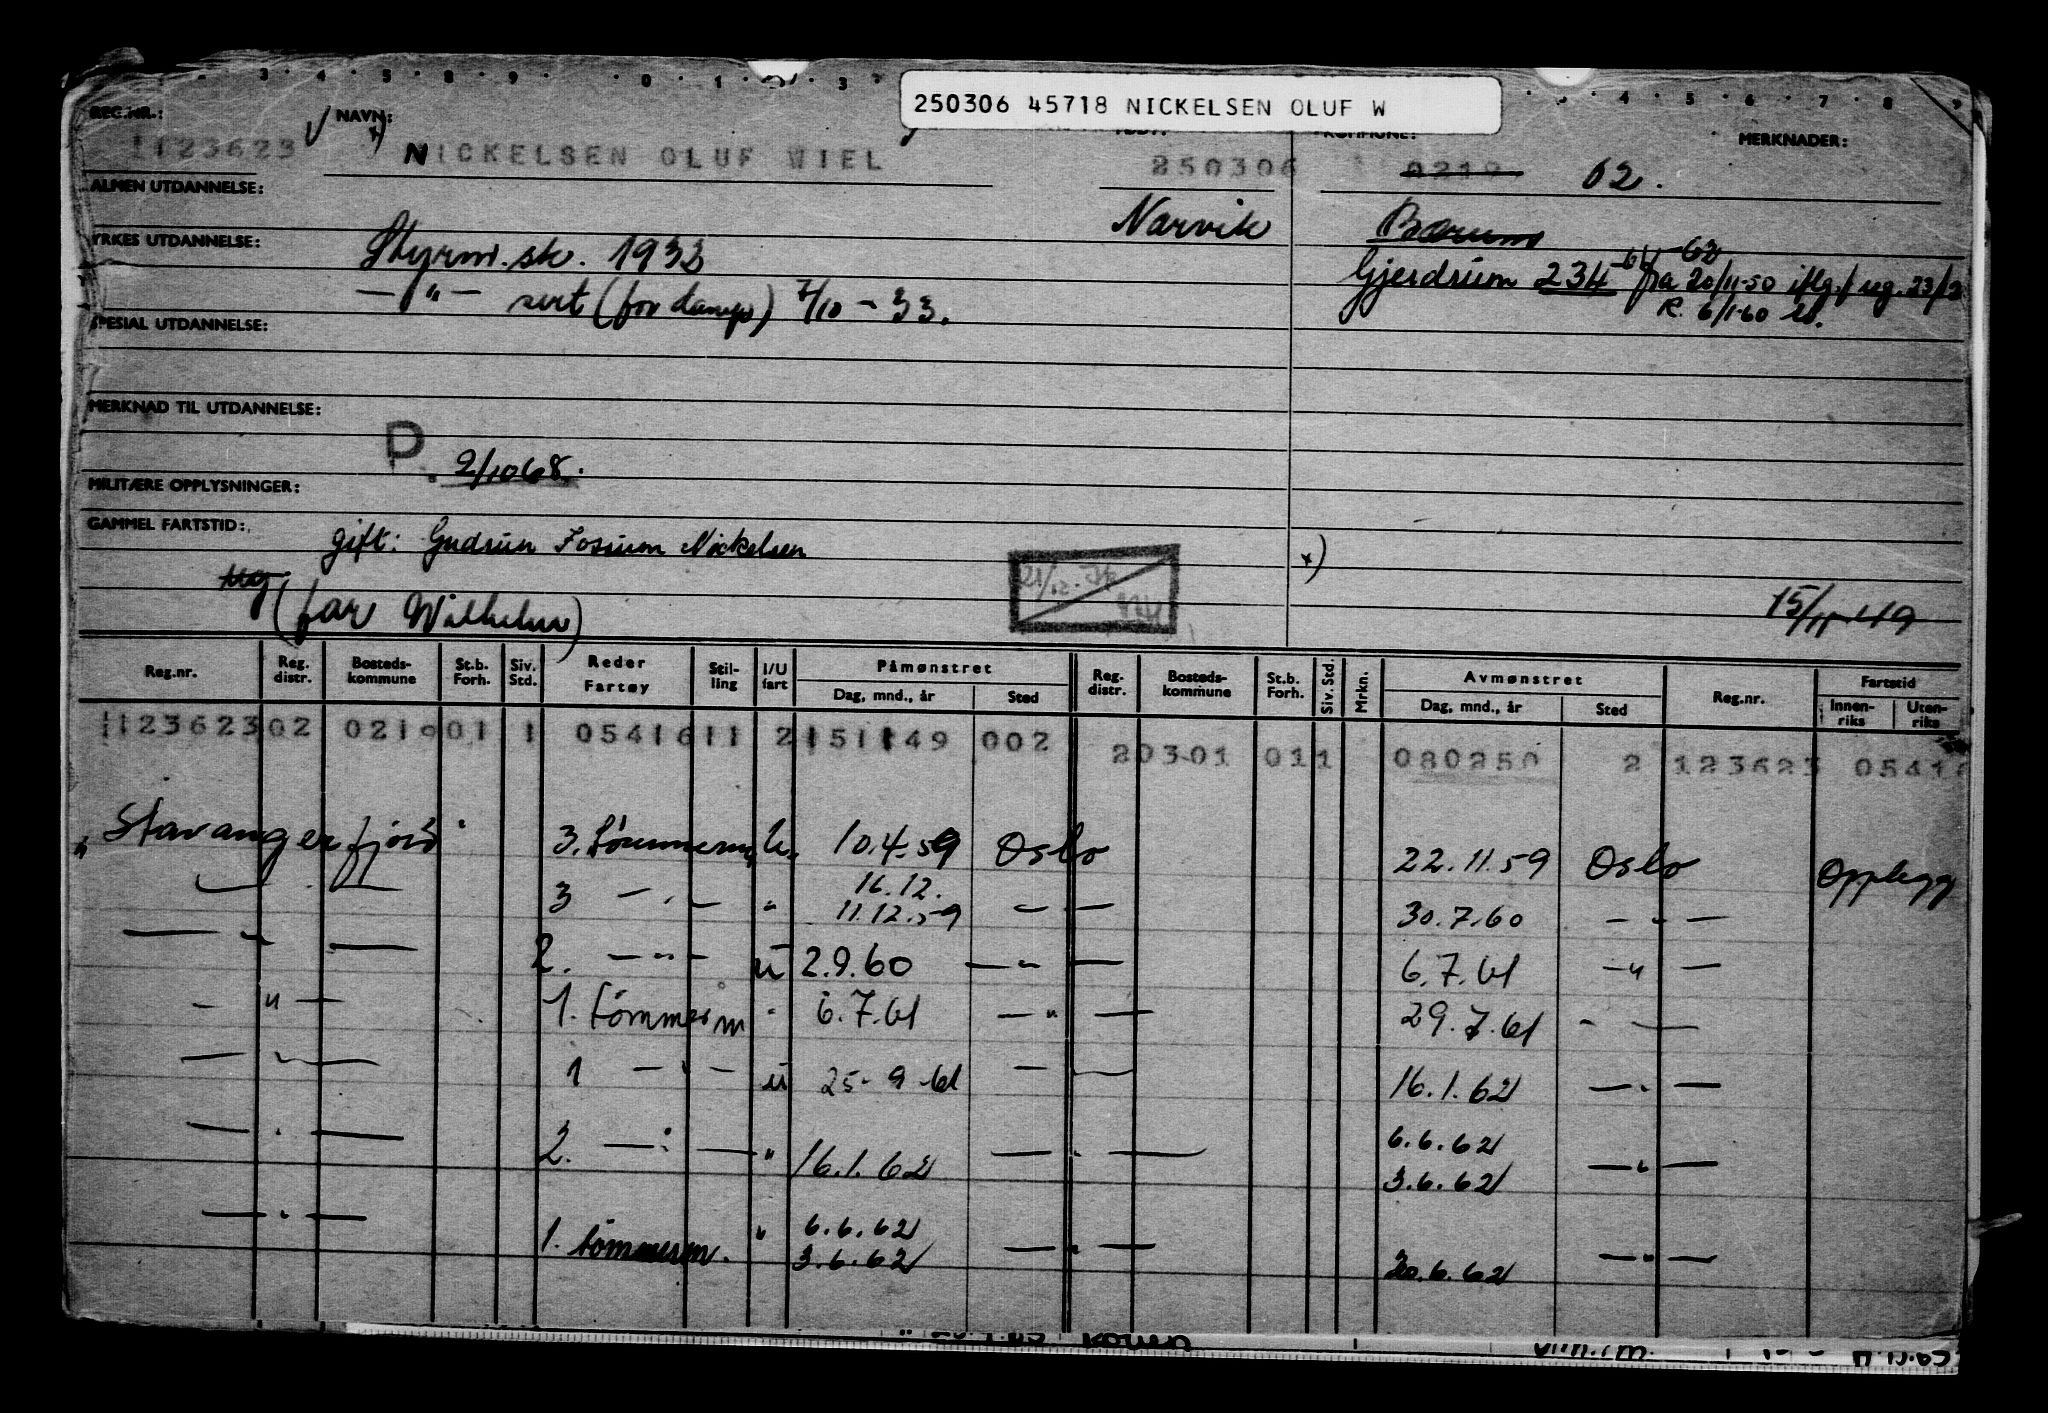 250306 45718 NICKELSEN OLUF W
REG.NR.: NAVN: KOMMUNE: MERKNADER:
1123623 NICKELSEN OLUF WIEL 250306 0219 02.
ALMEN UTDANNELSE:
Narvik Bærum
YRKES UTDANNELSE: Styrm. sk. 1932
Gjerdrum 234 fra 20/11-50
— " — sert (for damp) 7/10 - 33.
R. 6/1-60
SPESIAL UTDANNELSE:
MERKNAD TIL UTDANNELSE:
P. 2/10 68.
MILITÆRE OPPLYSNINGER:
GAMMEL FARTSTID:
gift: Gudrun Fossum Nickelsen
x)
(far Wilhelm)
15/11-49
Reg.nr. Reg. distr. Bosteds-kommune St.b. Forh. Siv. Std. Reder Fartøy Stil-ling I/U fart Påmønstret Dag, mnd., år Sted Reg. distr. Bosteds-kommune St.b. Forh. Siv. Std. Mrkn. Avmønstret Dag, mnd., år Sted Reg.nr. Fartstid Innen-riks Uten-riks
1123623 02 0219 01 1 05416 11 2 151149 002 2 0301 01 1 080250 2 123623 05416
"Stavangerfjord" 3. tömmerm. U. 10.4.59 Oslo 22.11.59 Oslo Opplegg
16.12.
3 — " — " 11.12.59 — " — 30.7.60 — " —
— " — 2. — " — U 2.9.60 — " — 6.7.61 — " —
— " — 1. tömmerm " 6.7.61 — " — 29.7.61 — " —
— " — 1 — " — U 25-9-61 — " — 16.1.62 — " —
6.6.62
— " — 2. — " — " 16.1.62 — " — 3.6.62 — " —
6.6.62
— " — 1. tömmerm. " 3.6.62 — " — 20.6.62 — " —